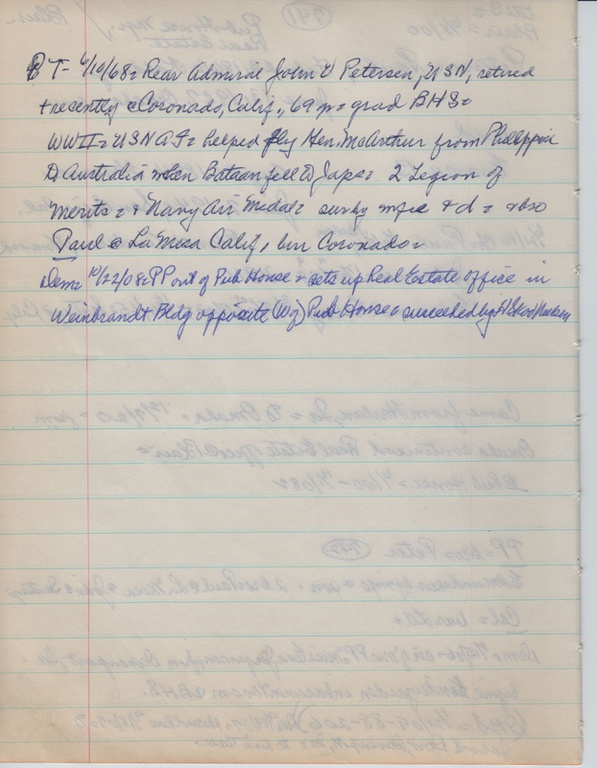 T- 6/10/68 = Rear Admiral John V Petersen, USN, retired
+ recently @ Coronado, Calif., 69 m = grad BHS =
WWII = USNAF = helped fly Gen. McArthur from Philippine
to Australia when Bataan fell to Japs = 2 Legion of
Merits = + Navy Air Medal = surv by wife + d = + bro
Paul @ La Mesa Calif, bur Coronado =
Dem = 10/22/08 = PP out of Pub House = sets up Real Estate office in
Weinbrandt Bldg opposite (W of) Pub House = succeeded by